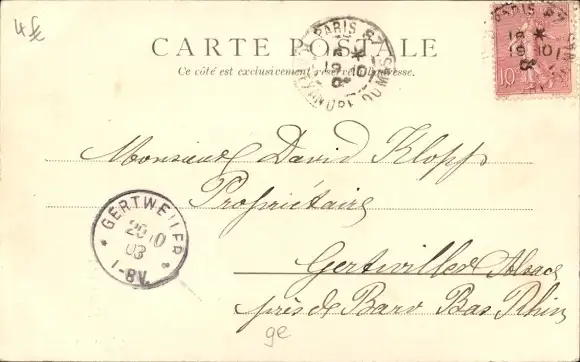 4 Sc
CARTE POSTALE
Ce côté est exclusivement réservé à l'adresse.
PARIS 87
19 * 10
03
10
Monsieur David Klopp
Propriétaire
GERTWEILER
20 10
03
1-8V.
Gertwiller Alsace
près de Barr Bas Rhin
ge